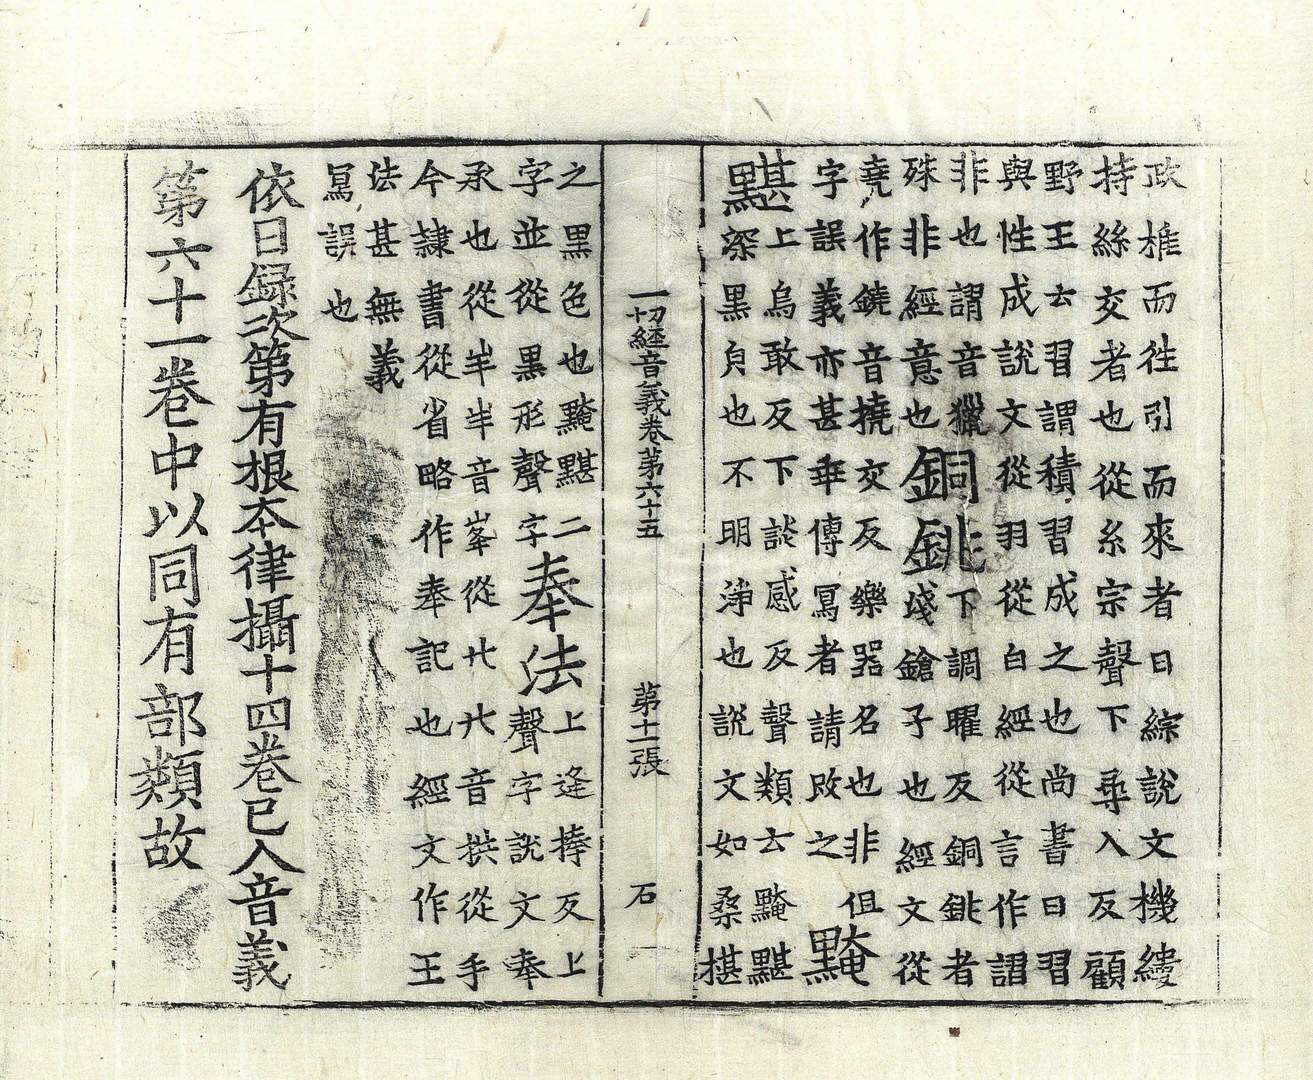 政推而往引而來者曰綜說文機縷
持絲交者也從糸宗聲下尋入反顧
野王云習謂積習成之也尚書曰習
與性成說文從羽從白經從言作謵
非也謂音獵
殊非經意也
銅銚
下調曜反銅銚者
淺鎗子也經文從
堯作鐃音撓交反樂器名也非但
字誤義亦甚乖傳寫者請改之
黤
黮
上烏敢反下談感反聲類云黤黮
深黑皃也不明淨也說文如桑椹
一切經音義卷第六十五 第十一張 石
之黑色也黤黮二
字並從黑形聲字
奉法
上逢捧反上
聲字說文奉
承也從半半音峯從廾廾音拱從手
今隷書從省略作奉記也經文作王
法甚無義
寫誤也
依目録次第有根本律攝十四卷已入音義
第六十一卷中以同有部類故